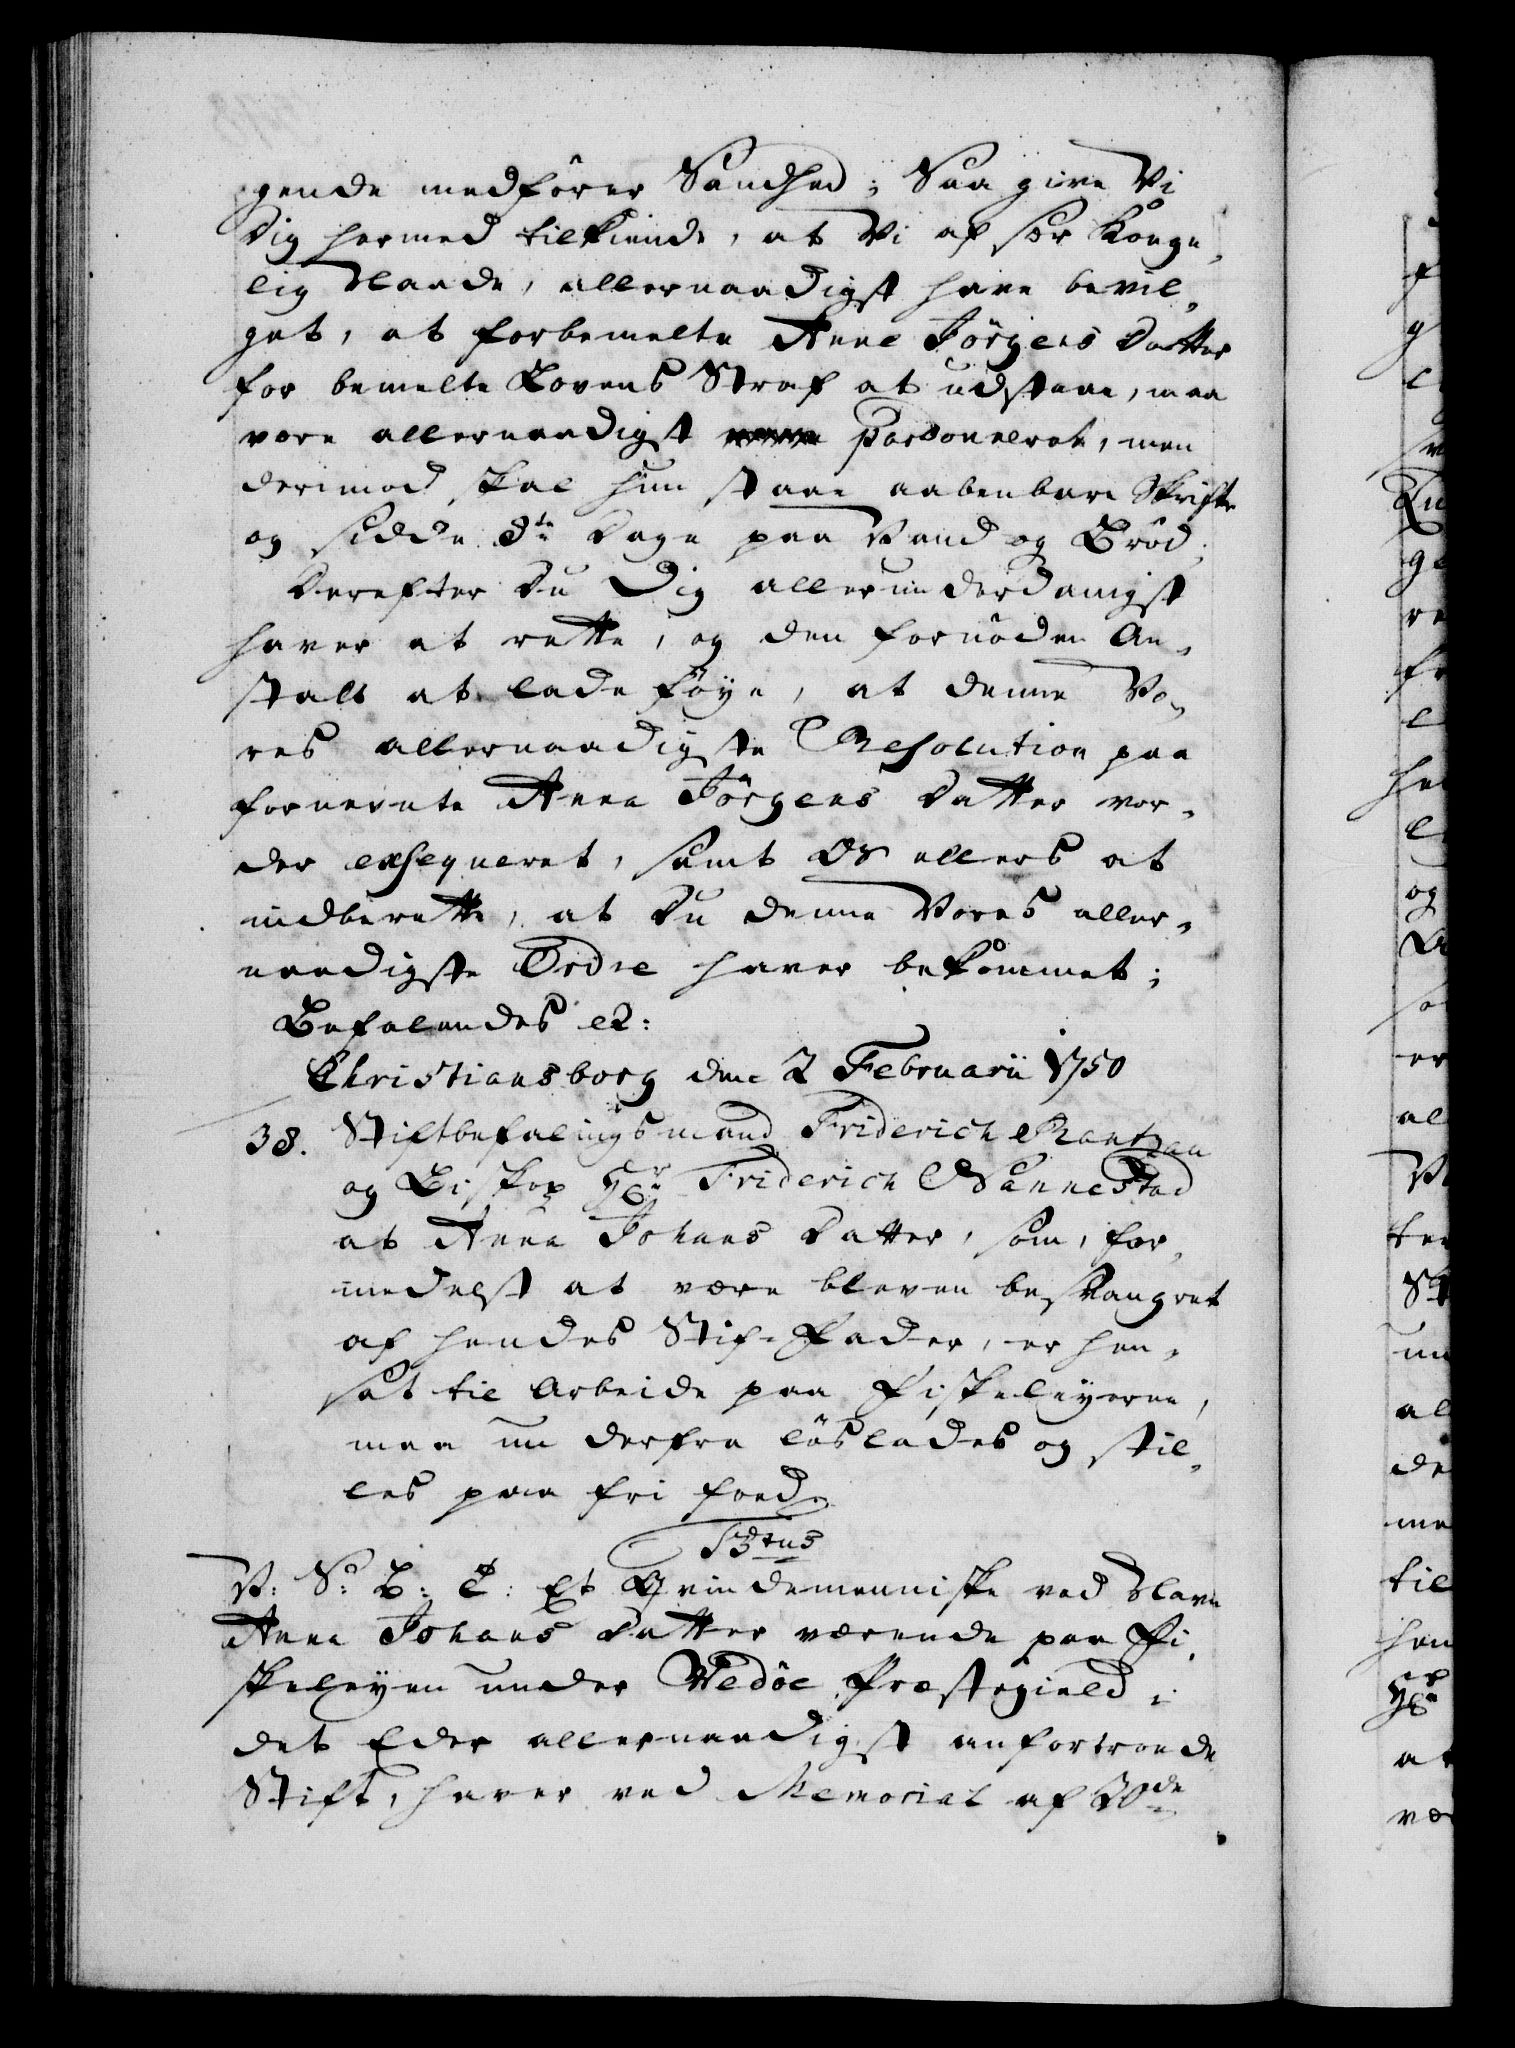 gende medfører Sandhed; Saa give Vi
Dig hermed tilkiende, at Vi af sær Konge¬
lig Naade, allernaadigst have bevil¬
get, at forbemelte Anne Jörgens Datter
for bemelte Lovens Straf at udstaae, maa
være allernaadigst Pardonneret, men
derimod skal hun staae aabenbare Skrifte
og sidde 8te Dage paa Vand og Brød.
Derefter Du Dig allerunderdanigst
haver at rette, og den fornøden An¬
stalt at lade føye, at denne Vo¬
res allernaadigste Resolution paa
fornevnte Anne Jörgens Datter vor¬
der exseqveret, samt Os ellers at
indberette, at Du denne Vores aller¬
naadigste Ordre haver bekommet;
Befalendes etc:
Christiansborg den 2 Februarii 1750
38. Stiftbefalingsmand Friderich Rantzau
og Biskop Hr Friderich Nannestad
at Anne Johans Datter, som, for¬
medelst at være bleven besvangret
af hendes Stif-Fader, er hen¬
sat til Arbeide paa Fiskeleyerne,
maa nu derfra løslades og stil¬
les paa fri foed.
V: S: B: T: Et Qvindemenniske ved Navn
Anne Johans Datter værende paa Fi¬
skeleyen under Wedöe Præstegield i
det Eder allernaadigst anfortroede
Stift, haver ved Memorial af 30de